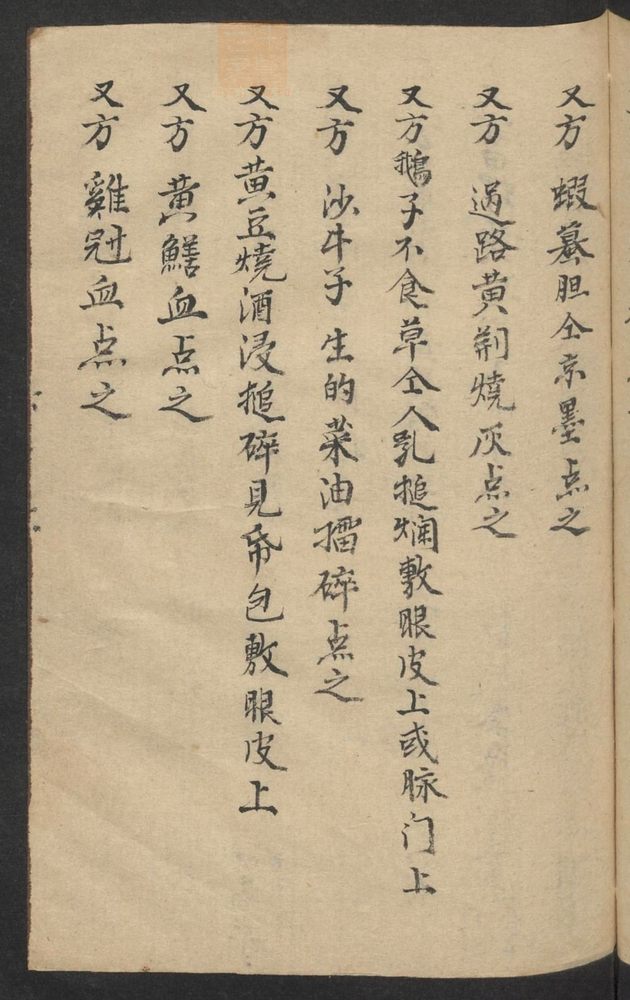 又方 蝦蟇胆仝京墨点之
又方 过路黄荆燒灰点之
又方鵝子不食草仝人乳搥爛敷眼皮上或脉门上
又方 沙牛子 生的菜油擂碎点之
又方黄豆燒酒浸搥碎見帋包敷眼皮上
又方 黄鱔血点之
又方 雞冠血点之